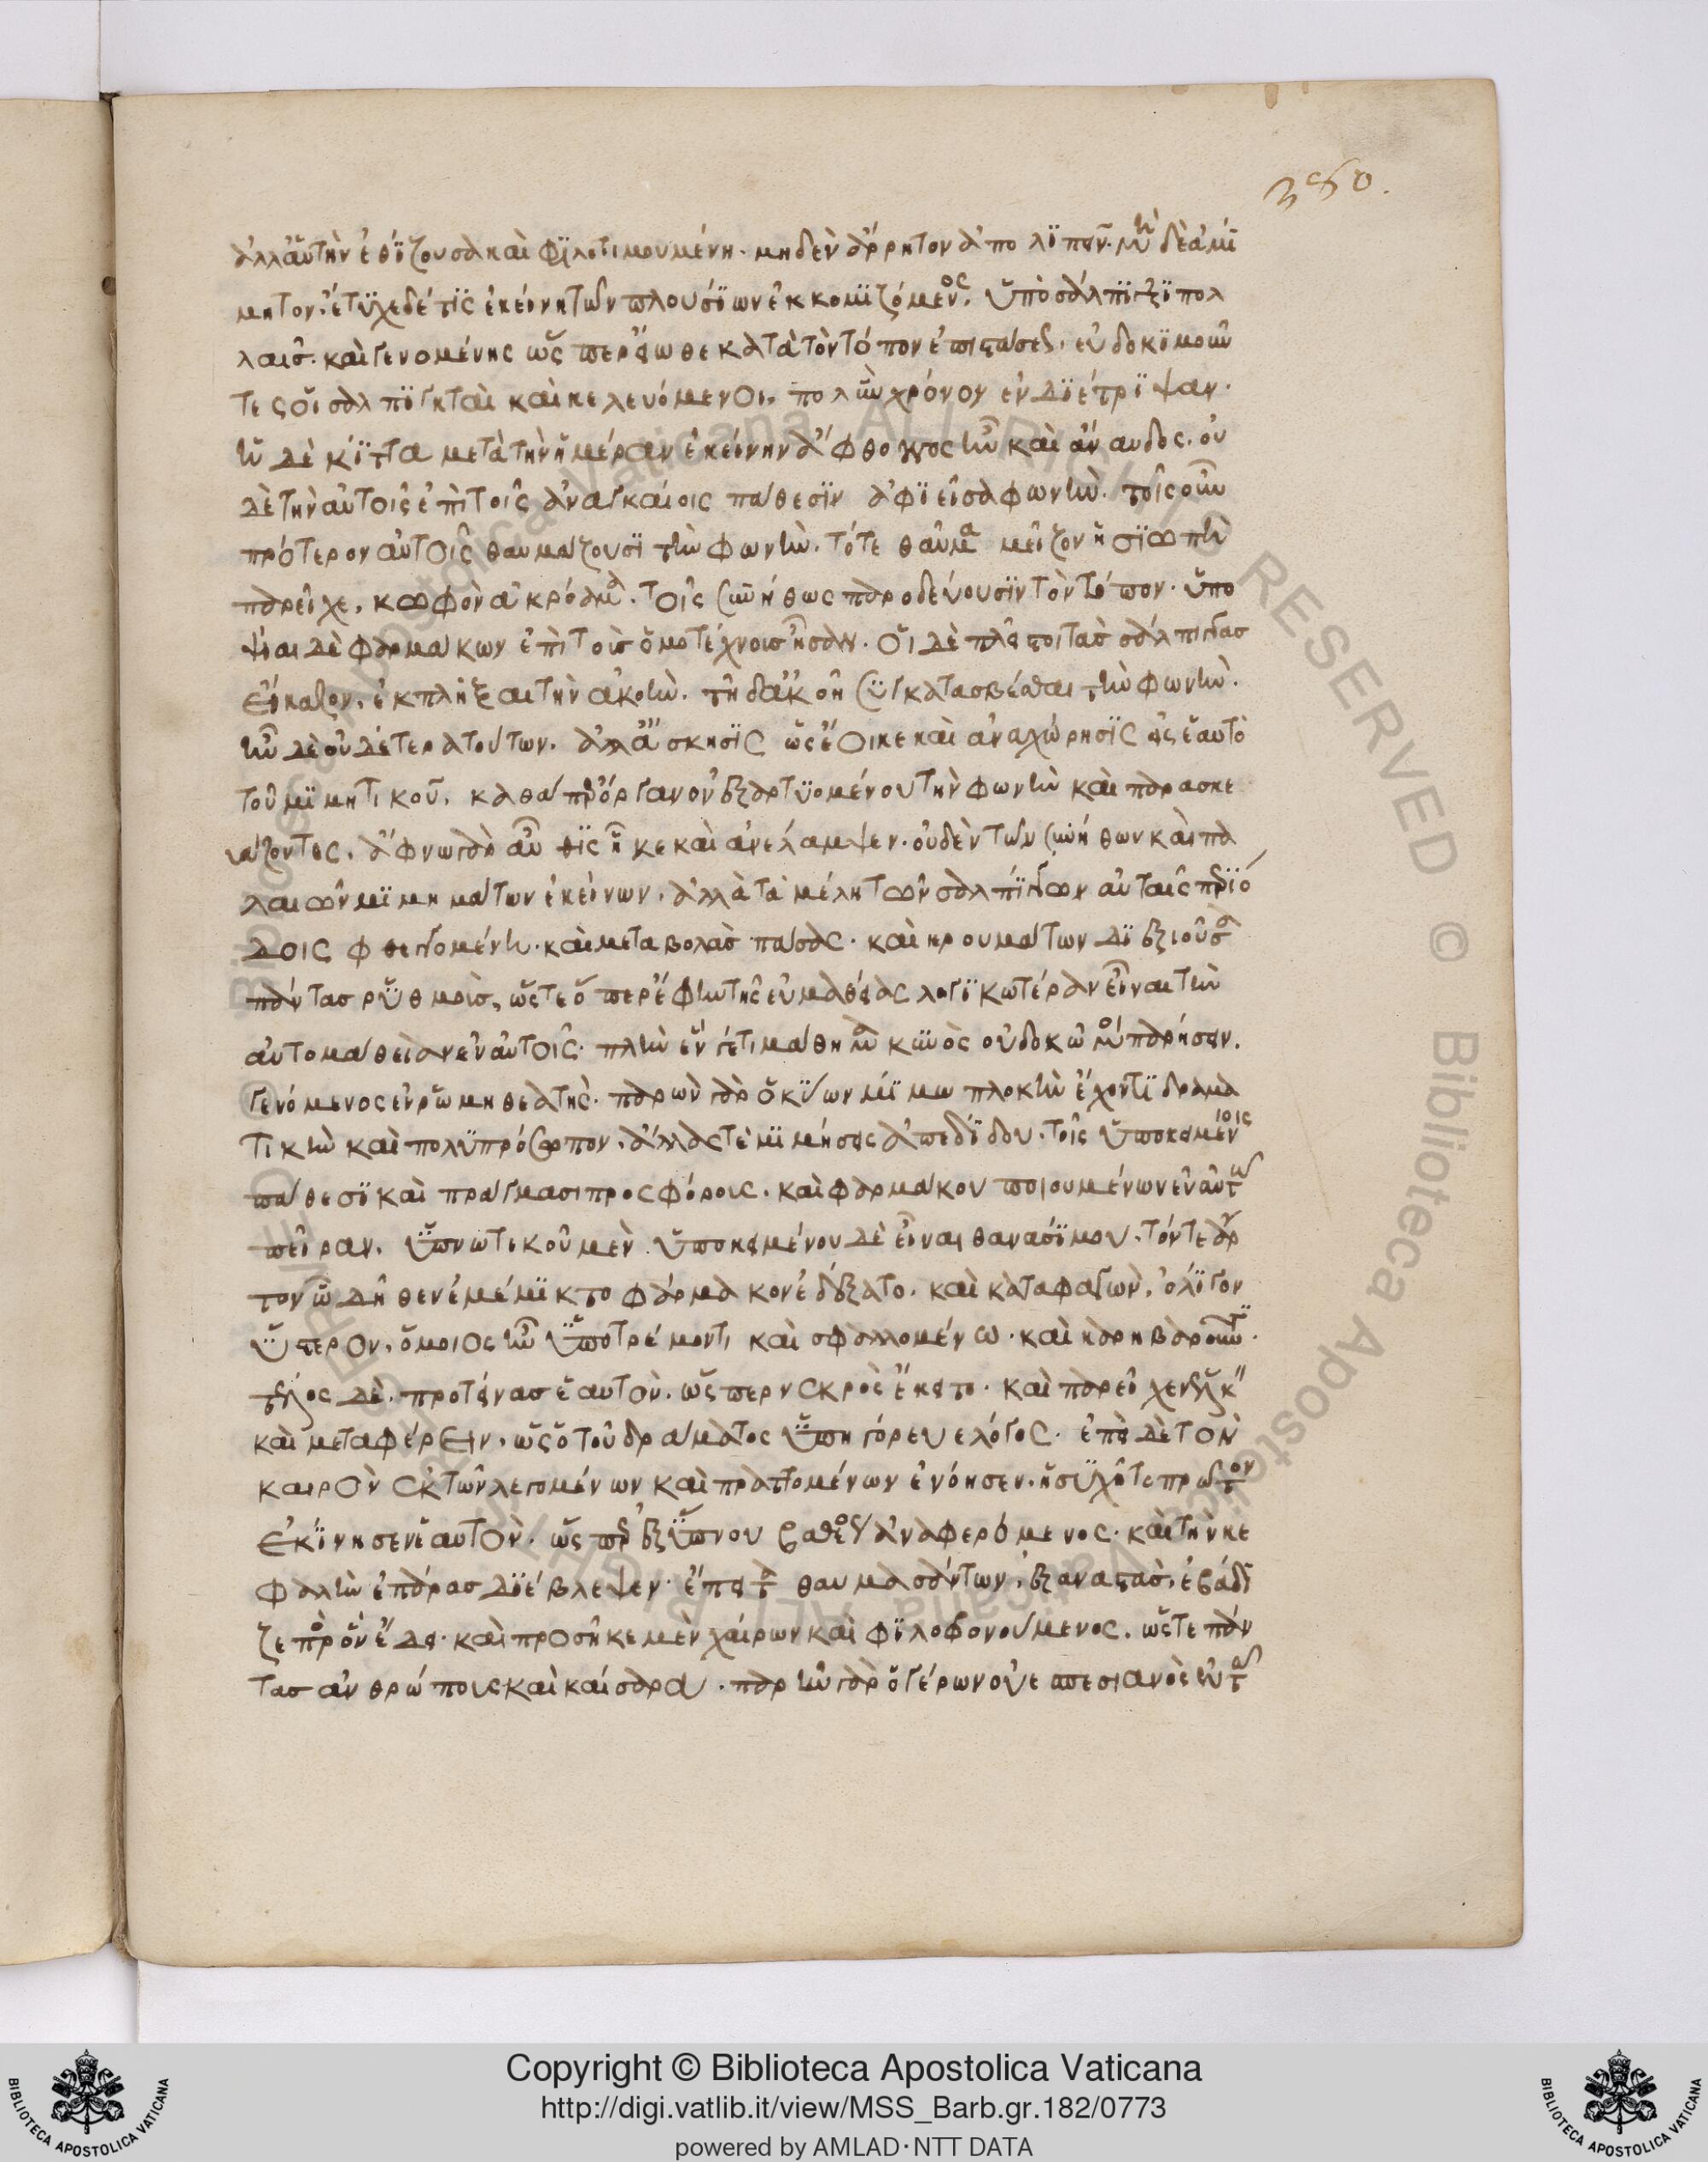 380.
ἀλλ' αὑτὴν ἐθίζουσα καὶ φιλοτιμουμένη. μηδὲν ἄρρητον ἀπολιπεῖν. μὴ δὲ ἀμί
μητον. ἔτυχε δέ τις ἐκεῖ νητῶν πλουσίων ἐκκομιζόμενος. ὑπὸ σάλπιγξι πολ
λαῖς. καὶ γενομένης ὥσπερ εἴωθε κατὰ τὸν τόπον ἐπιστάσεως. εὐδοκιμοῦν
τες οἱ σαλπιγκταὶ καὶ κελευόμενοι. πολὺν χρόνον ἐνδιέτριψαν.
ἡ δὲ κίττα μετὰ τὴν ἡμέραν ἐκείνην ἄφθογγος ἦν καὶ ἄναυδος. οὐ
δὲ τὴν αὐτοῖς ἐπὶ τοῖς ἀναγκαίοις πάθεσιν ἀφιεῖσα φωνήν. τοῖς οὖν
πρότερον αὐτοῖς θαυμάζουσι τὴν φωνήν. τότε θαῦμα μεῖζον ἡ σιωπὴ
παρεῖχε, κωφὸν ἀκρόαμα. τοῖς συνήθως παροδεύουσιν τὸν τόπον. ὑπο
ψίαι δὲ φαρμάκων ἐπὶ τοὺς ὁμοτέχνοισ ἦσαν. οἱ δὲ πλεῖστοι τὰσ σάλπιγγασ
εἴκαζον, ἐκπλῆξαι τὴν ἀκοήν. τῇ δ' ἀκοῇ συγκατασβέσθαι τὴν φωνήν.
ἦν δὲ οὐδέτερα τούτων. ἀλλ' ἄσκησις ὡς ἔοικε καὶ ἀναχώρησις εἰς ἑαυτὸ
τοῦ μιμητικοῦ. καθάπερ ὄργανον ἐξαρτυομένου τὴν φωνὴν καὶ παρασκε
υάζοντος. ἄφνω γὰρ αὖθις ἧκε καὶ ἀνέλαμψεν. οὐδὲν τῶν συνήθων καὶ πα
λαιῶν μιμημάτων ἐκείνων. ἀλλὰ τὰ μέλη τῶν σαλπίγγων αὐταῖς περιό
δοις φθεγγομένη. καὶ μεταβολὰσ πάσας. καὶ κρουμάτων διεξιοῦσα
πάντασ ρυθμοὺσ, ὥστε ὅπερ ἔφην τῆς εὐμαθείας λογικωτέραν εἶναι τὴν
αὐτομάθειαν ἐν αὐτοῖς. πλὴν ἕν γέ τι μάθημα κυνὸς οὐ δοκῶ μοι παρήσειν.
γενόμενος ἐν ρώμη θεατής. παρὼν γὰρ ὁ κύων μίμω πλοκὴν ἔχοντι δραμα
τικὴν καὶ πολυπρόσωπον. ἄλλας τε μιμήσεις ἀπεδίδου. τοῖς ὑποκειμένοις
πάθεσι καὶ πράγμασι προσφόρους. καὶ φαρμάκου ποιουμένων ἐν αὐτῷ
πεῖραν. ὑπνωτικοῦ μὲν ὑποκειμένου δὲ εἶναι θανασίμου. τόν τε ἄρ
τον ᾧ δῆθεν ἐμέμικτο φάρμακον ἐδέξατο. καὶ καταφαγὼν. ὀλίγον
ὕστερον, ὅμοιος ἦν ὑποτρέμοντι καὶ σφαλλομένω. καὶ καρηβαροῦντι.
τέλος δὲ. προτείνασ ἑαυτὸν. ὥσπερ νεκρὸς ἔκειτο. καὶ παρεῖχεν ἕλκειν
καὶ μεταφέρειν. ὡς ὁ τοῦ δράματος ὑπηγόρευε λόγος. ἐπεὶ δὲ τὸν
καιρὸν ἐκ τῶν λεγομένων καὶ πραττομένων ἐνόησεν. ἡσυχῆ τὸ πρῶτον
ἐκίνησεν ἑαυτὸν. ὥσπερ ἐξ ὕπνου βαθέος ἀναφερόμενος. καὶ τὴν κε
φαλὴν ἐπάρασ διέβλεψεν. ἔπειτα θαυμασάντων, ἐξαναστὰσ, ἐβάδι
ζε πρὸς ὃν ἔδει. καὶ προσῆκε μὲν χαίρων καὶ φιλοφονούμενος. ὥστε πάν
τασ ἀνθρώπους καὶ καίσαρα. παρῆν γὰρ ὁ γέρων οὐεσπεσιανὸς ἐν τῷ
Copyright © Biblioteca Apostolica Vaticana
http://digi.vatlib.it/view/MSS_Barb.gr.182/0773
powered by AMLAD·NTT DATA